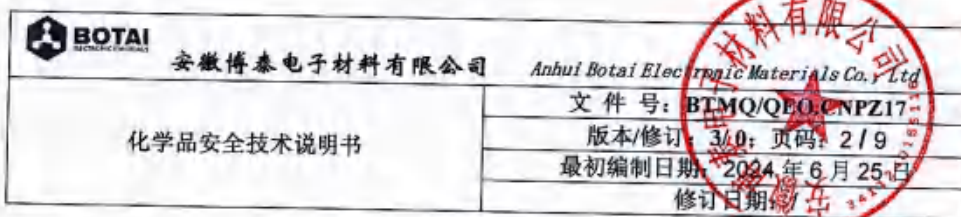 BOTAI
安徽博泰电子材料有限公司 Anhui Botai Electronic Materials Co., Ltd
化学品安全技术说明书
文 件 号: BTMQ/QEO.CNPZ17
版本/修订: 3/0; 页码: 2 / 9
最初编制日期: 2024 年 6 月 25 日
修订日期: /
电子材料有限公司